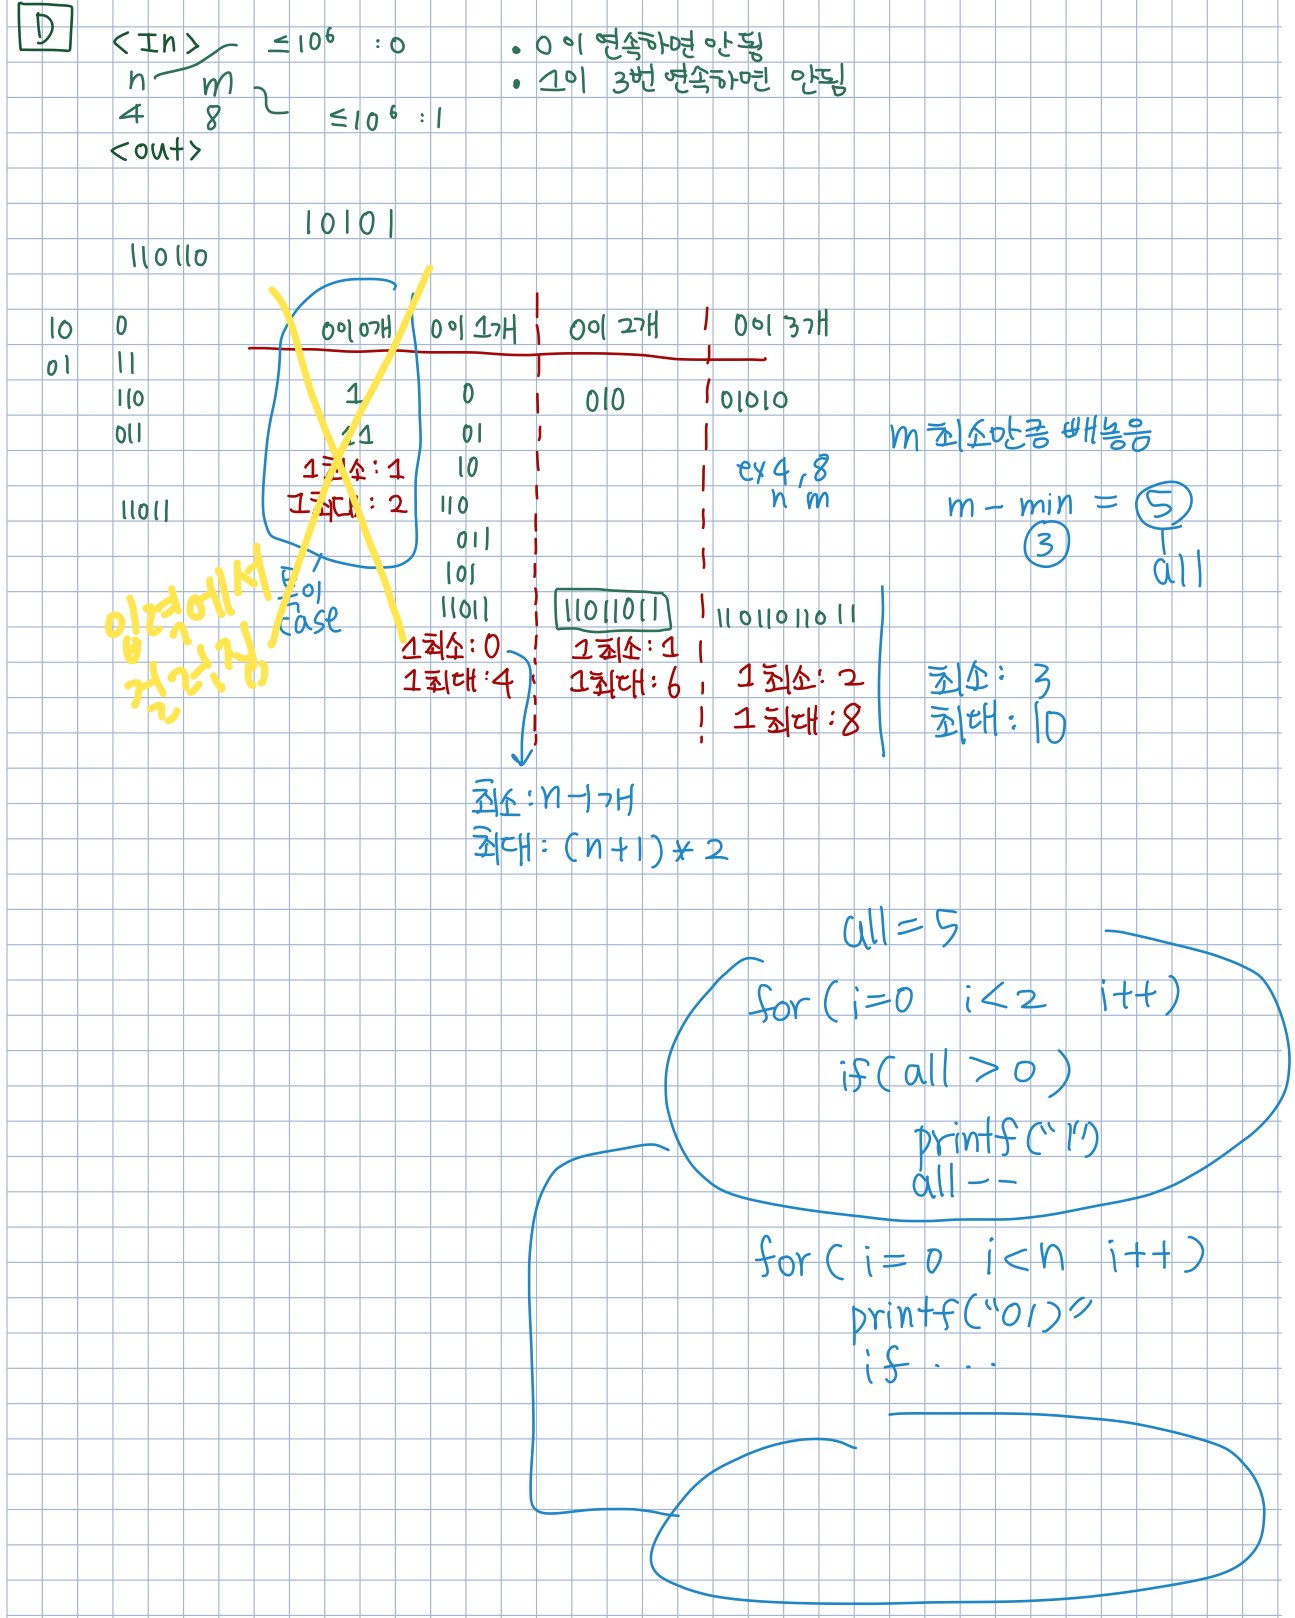 D
<In> ≤10⁶ : 0
n m
4 8 ≤10⁶ : 1
<out>
• 0이 연속하면 안됨
• 1이 3번 연속하면 안됨
10101
110110
10 0
01 11
110
011
11011
0이 0개 0이 1개 0이 2개 0이 3개
1 0 010 01010
11 01
1최소: 1 10
1최대: 2 110
011
101
11011 11011011 11011011011
특이
case
입력에서
걸러짐
1최소: 0 1최소: 1 1최소: 2 최소: 3
1최대: 4 1최대: 6 1최대: 8 최대: 10
ex 4, 8
n m
m 최소만큼 빼놓음
m - min = 5
3 all
최소: n-1개
최대: (n+1)*2
all = 5
for ( i=0 i<2 i++)
if( all > 0 )
printf("1")
all--
for ( i= 0 i<n i++)
printf("01)"
if ...